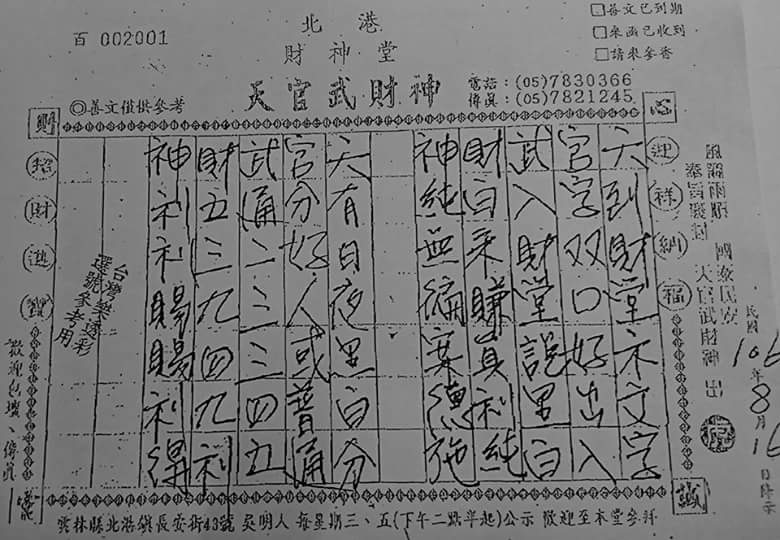 北港
財神堂
天官武財神
百 002001
□善文已到期
□來函已收到
□請來參香
電話:(05)7830366
傳真:(05)7821245
◎善文僅供參考
民國106年8月16日降示
風調雨順 國泰民安
天官武財神 出
心
誠
迎祥納福
天到財堂求文字
官字双口好出入
武入財堂說里白
財白来賺真利純
神純無编案德施
天有日夜里白分
官分好人或普通
武通二三三四五
財五三九四九利
神利利賜賜利得
台灣樂透彩
選號參考用
財
招財進寶
歡迎包壇、傳真
雲林縣北港鎮長安街43號 吳明人 每星期三、五(下午二點半起)公示 歡迎至本堂參拜